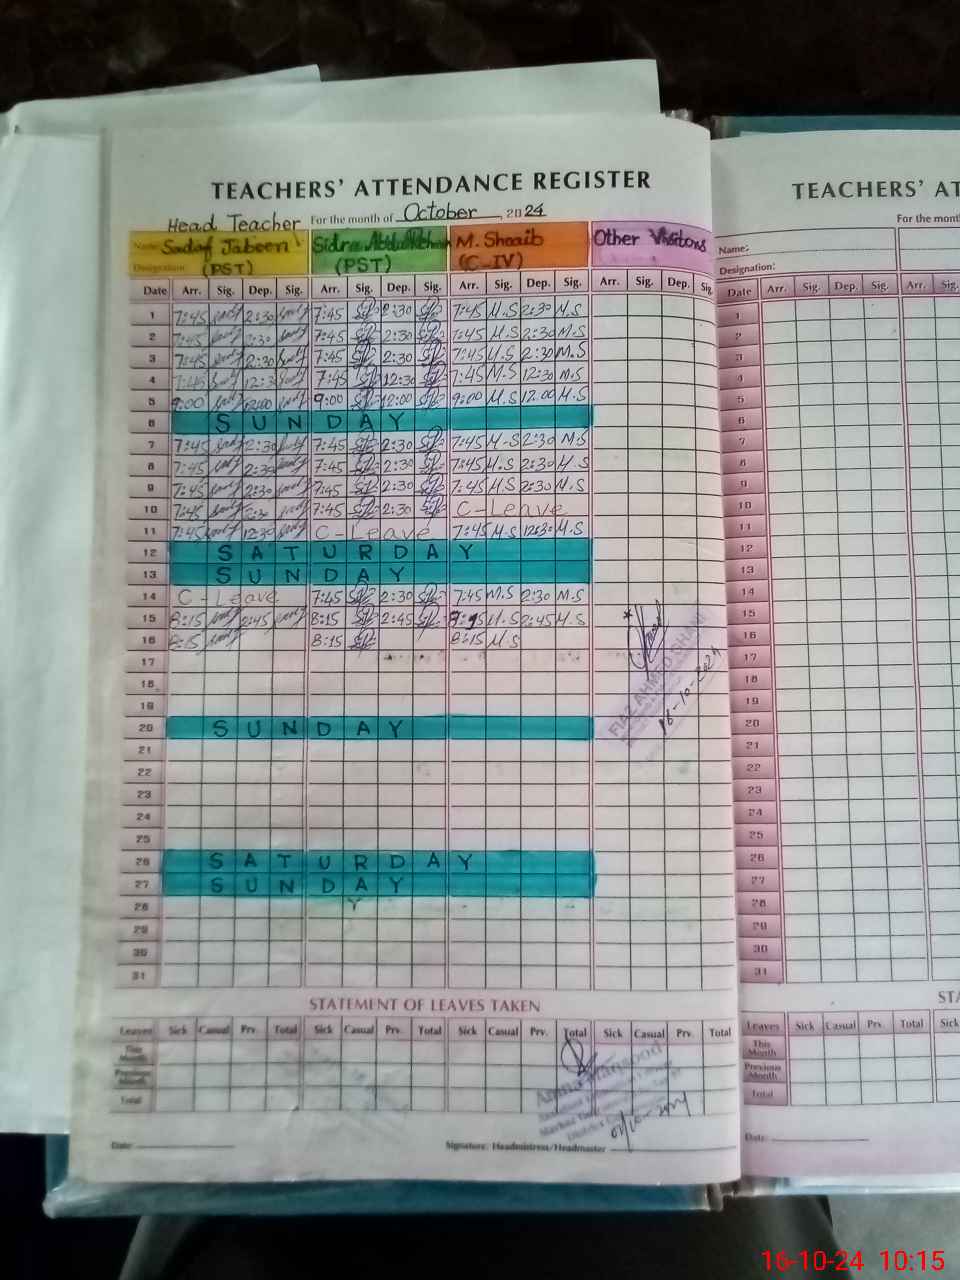 TEACHERS' ATTENDANCE REGISTER
Head Teacher For the month of October, 2024
Name: Sadaf Jabeen Sidra Abdul Rehman M. Shoaib Other Visitors
Designation: (PST) (PST) (C-IV)
Date Arr. Sig. Dep. Sig. Arr. Sig. Dep. Sig. Arr. Sig. Dep. Sig. Arr. Sig. Dep. Sig.
1 7:45 2:30 7:45 2:30 7:45 M.S 2:30 M.S
2 7:45 2:30 7:45 2:30 7:45 M.S 2:30 M.S
3 7:45 2:30 7:45 2:30 7:45 M.S 2:30 M.S
4 7:45 12:30 7:45 12:30 7:45 M.S 12:30 M.S
5 9:00 12:00 9:00 12:00 9:00 M.S 12:00 M.S
6 SUNDAY
7 7:45 2:30 7:45 2:30 7:45 M.S 2:30 M.S
8 7:45 2:30 7:45 2:30 7:45 M.S 2:30 M.S
9 7:45 2:30 7:45 2:30 7:45 M.S 2:30 M.S
10 7:45 2:30 7:45 2:30 C-Leave
11 7:45 12:30 C-Leave 7:45 M.S 12:30 M.S
12 SATURDAY
13 SUNDAY
14 C-Leave 7:45 2:30 7:45 M.S 2:30 M.S
15 8:15 2:45 8:15 2:45 M.S 2:45 M.S
16 8:15 8:15 8:15 M.S
17
18
19
20 SUNDAY
21
22
23
24
25
26 SATURDAY
27 SUNDAY
28
29
30
31
FIAZ AHMED SHAHI
16-10-2024
STATEMENT OF LEAVES TAKEN
Leaves Sick Casual Prv. Total Sick Casual Prv. Total Sick Casual Prv. Total Sick Casual Prv. Total
This Month
Previous Month
Total
Date: Signature: Headmistress/Headmaster
TEACHERS' AT
For the month
Name:
Designation:
Date Arr. Sig. Dep. Sig. Arr. Sig.
1
2
3
4
5
6
7
8
9
10
11
12
13
14
15
16
17
18
19
20
21
22
23
24
25
26
27
28
29
30
31
STA
Leaves Sick Casual Prv. Total Sick
This Month
Previous Month
Total
Date:
16-10-24 10:15